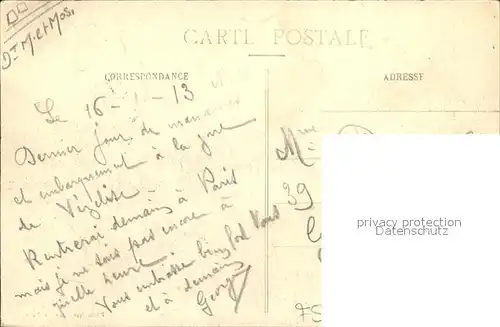 Dt M.et Mos.
CARTE POSTALE
CORRESPONDANCE
ADRESSE
Le 16 - - 13
Dernier jour de manœuvres
et embarquement à la gare
de Vézelise -
Rentrerai demain à Paris
mais je ne sais pas encore à
quelle heure
Vous embrasse bien fort Vous
et à demain
Georg
Mme
39
privacy protection
75